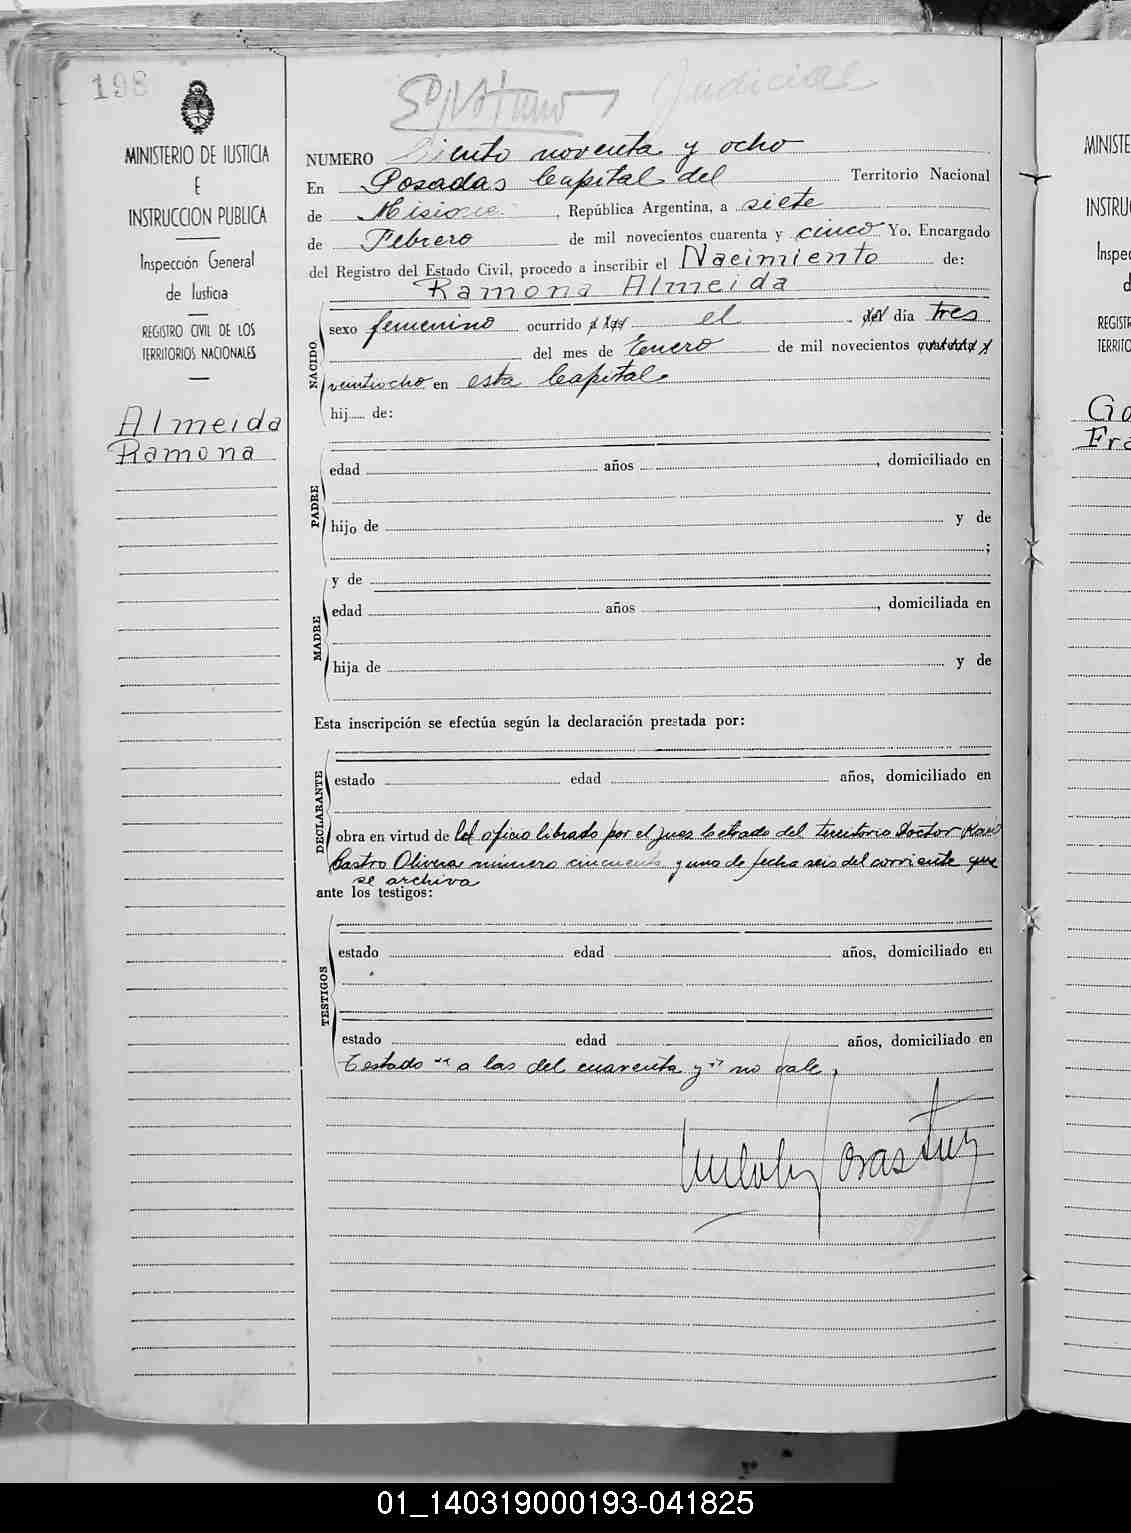 198
Judicial
MINISTERIO DE JUSTICIA
E
INSTRUCCION PUBLICA
Inspección General
de Justicia
REGISTRO CIVIL DE LOS
TERRITORIOS NACIONALES
Almeida
Ramona
NUMERO Ciento noventa y ocho
En Posadas Capital del Territorio Nacional
de Misiones, República Argentina, a siete
de Febrero de mil novecientos cuarenta y cinco Yo, Encargado
del Registro del Estado Civil, procedo a inscribir el Nacimiento de:
Ramona Almeida
NACIDO
sexo femenino ocurrido a las el del día tres
del mes de Enero de mil novecientos cuarenta y
veintiocho en esta Capital
hij de:
PADRE
edad años , domiciliado en
hijo de y de
;
y de
MADRE
edad años , domiciliada en
hija de y de
Esta inscripción se efectúa según la declaración prestada por:
DECLARANTE
estado edad años, domiciliado en
obra en virtud de oficio librado por el Juez letrado del territorio Doctor
Castro Olivera número cincuenta y uno de fecha seis del corriente que
se archiva
ante los testigos:
TESTIGOS
estado edad años, domiciliado en
estado edad años, domiciliado en
Testado "a las del cuarenta y" no vale,
MINISTE
INSTRU
Inspec
d
REGIST
TERRITO
Go
Fra
01_140319000193-041825